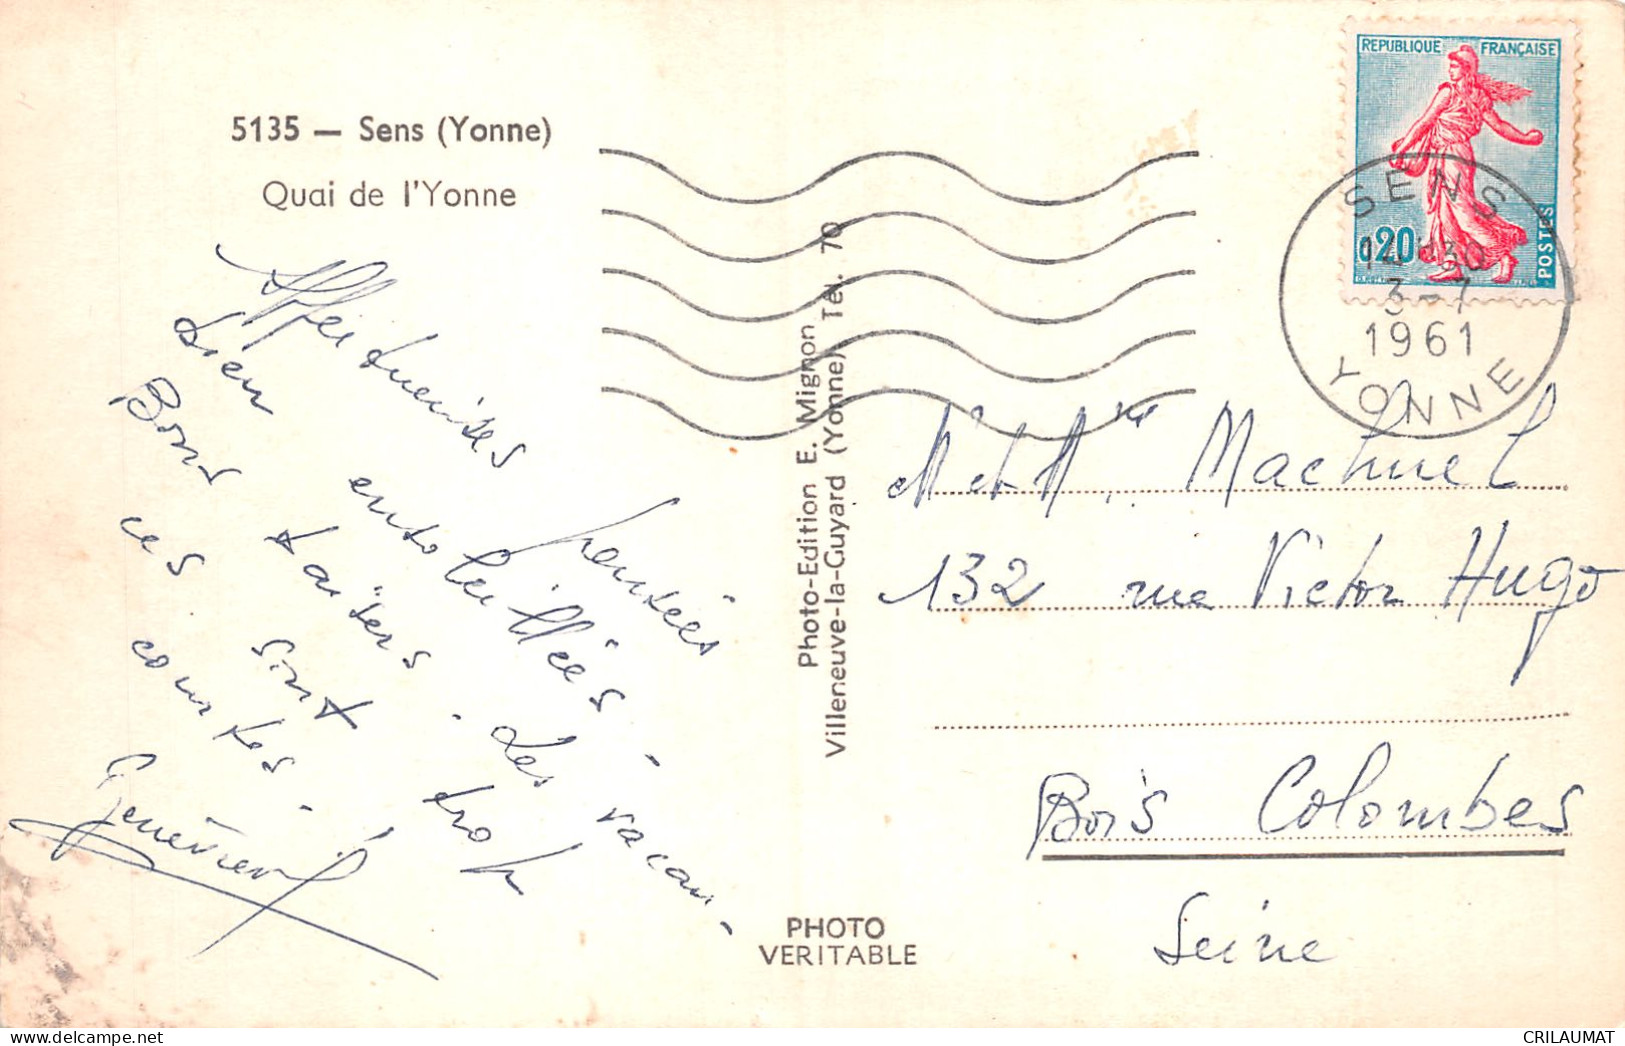 5135 — Sens (Yonne)
Quai de l'Yonne
Affectueuses pensées
bien ensoleillées -
Bons baisers. Les vacan-
ces sont trop
courtes -
Geneviève
Photo-Edition E. Mignon
Villeneuve-la-Guyard (Yonne) Tél. 70
PHOTO
VERITABLE
REPUBLIQUE FRANÇAISE
0,20
POSTES
SENS
3-7
1961
YONNE
Mr et Mme Machuel
132 rue Victor Hugo
Bois Colombes
Seine
CRILAUMAT